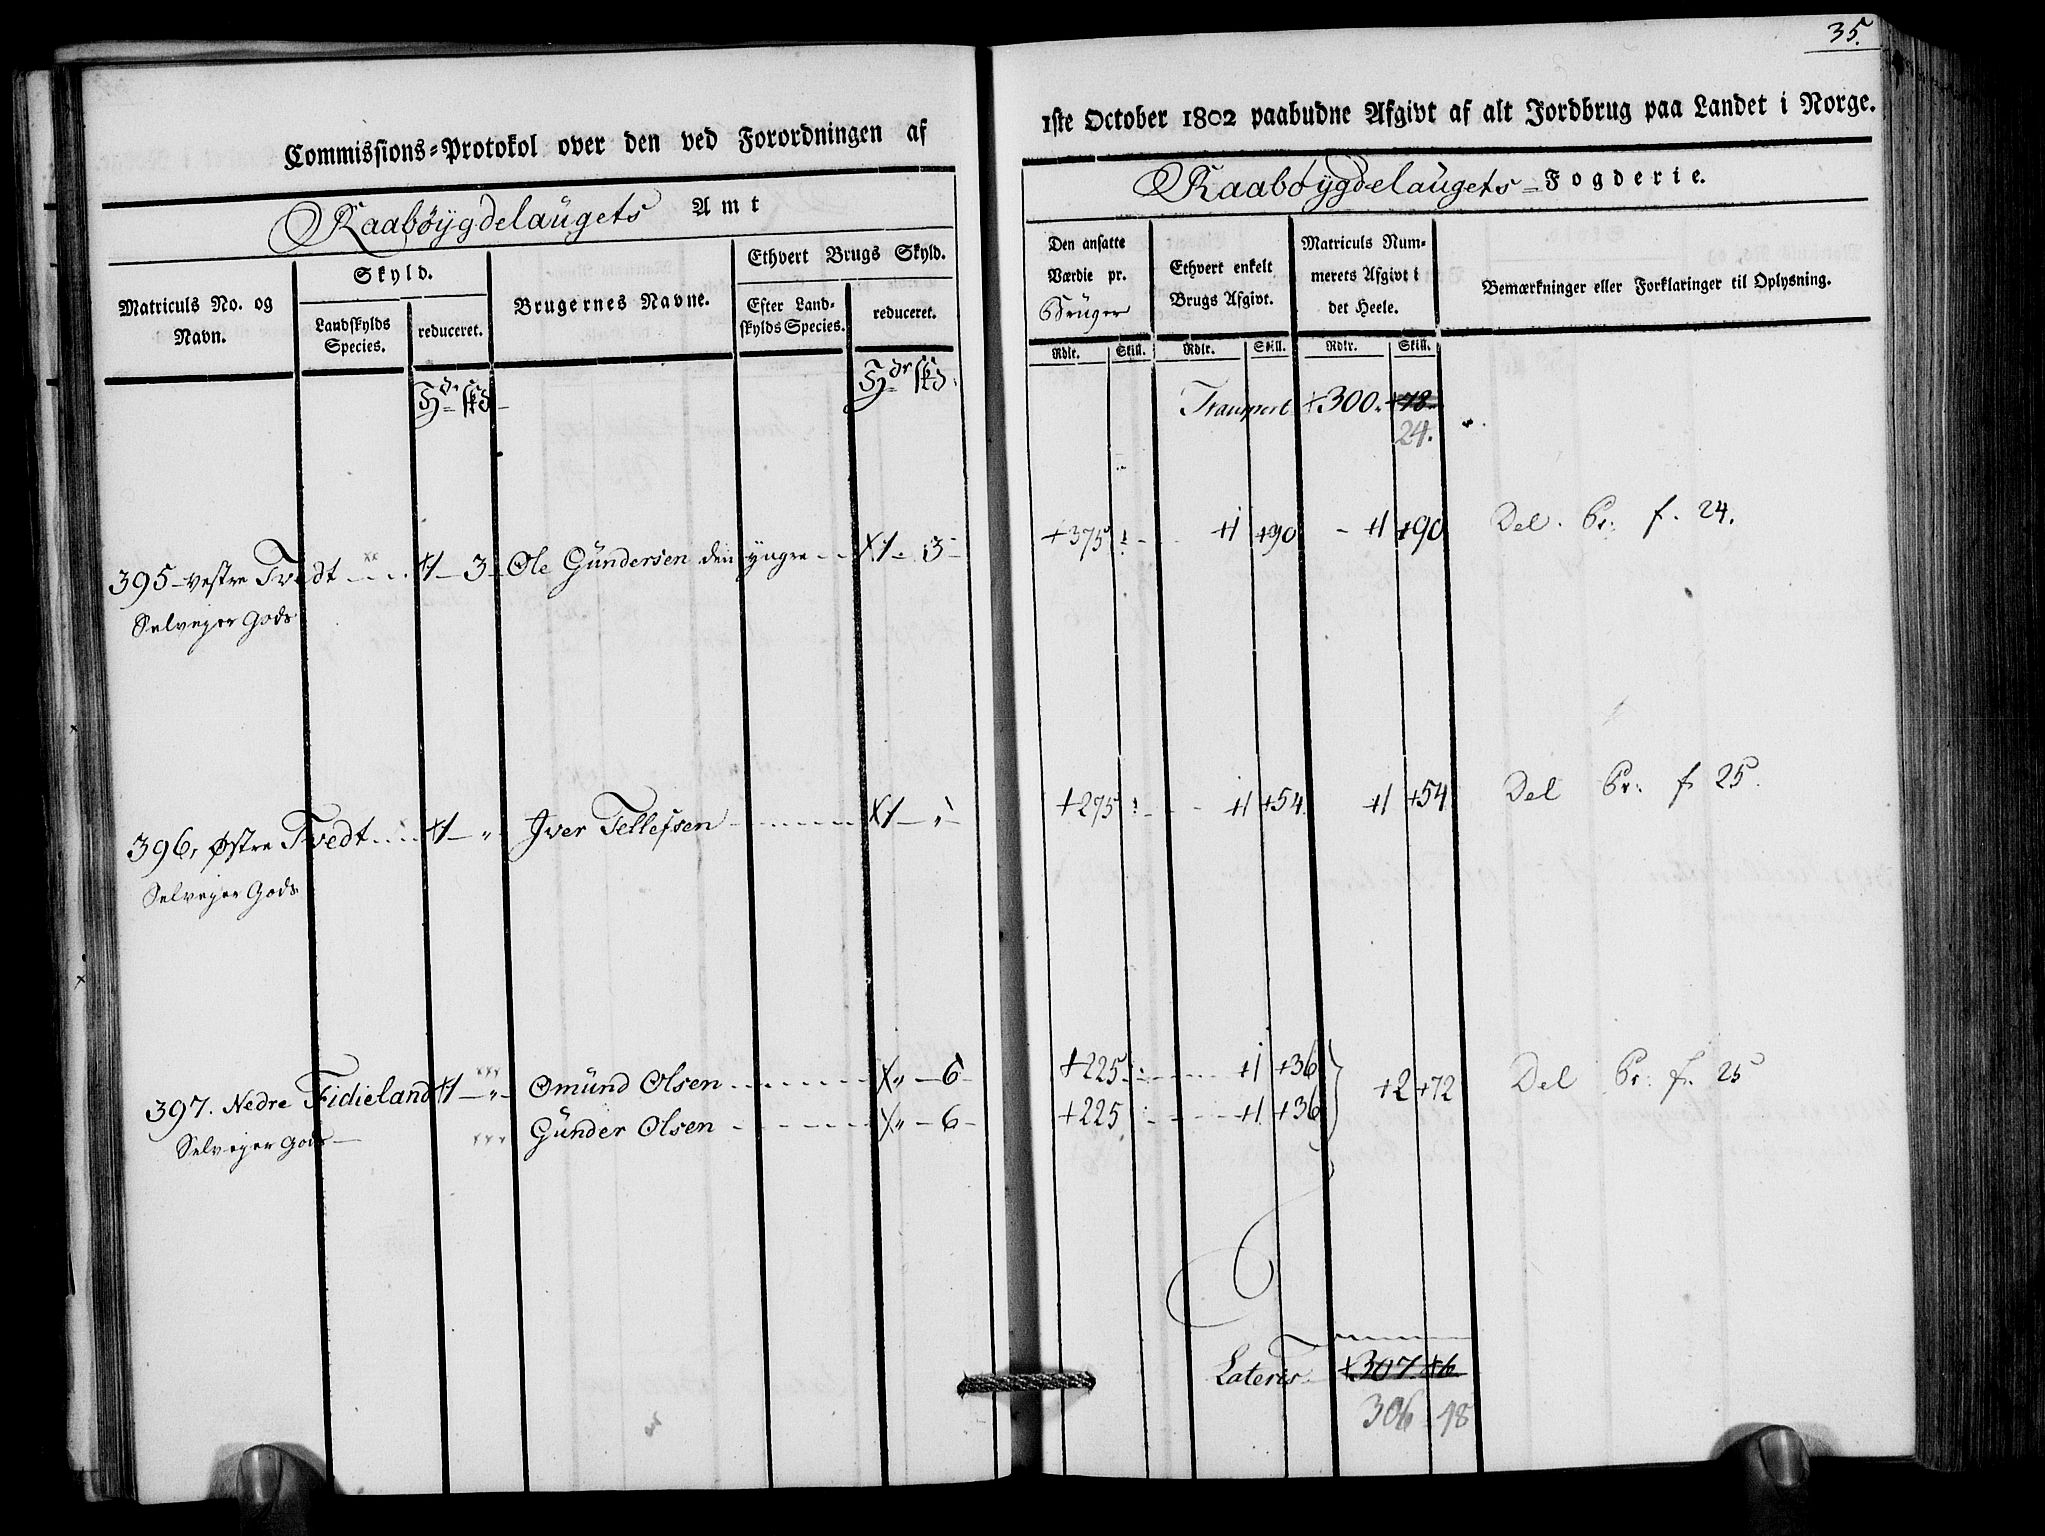 35.
Commissions-Protokol over den ved Forordningen af
1ste October 1802 paabudne Afgivt af alt Jordbrug paa Landet i Norge.
Raabøygdelaugets Amt
Raabøygdelaugets Fogderie.
Matriculs No. og Navn.
Skyld.
Landskylds Species.
reduceret.
Brugernes Navne.
Ethvert Brugs Skyld.
Efter Landskylds Species.
reduceret.
Den ansatte Værdie pr. Bruger
Ethvert enkelt Brugs Afgivt.
Matriculs Nummerets Afgivt i det Heele.
Bemærkninger eller Forklaringer til Oplysning.
Rdlr. Skill. Rdlr. Skill. Rdlr. Skill.
Transport +300. +78.
24.
395 Vestre Tvedt +1 3 Ole Gündersen den yngre X1 3 +375 +1 +90 +1 +90 Del. Pr: f. 24.
Selveyer Gods
396, Østre Tvedt +1 " Iver Tellefsen X1 " +275 +1 +54 +1 +54 Del Pr: f. 25.
Selveyer Gods
397. Nedre Fidieland +1 " Omünd Olsen X " 6 +225 +1 +36 +2 +72 Del Pr: f. 25
Selveyer Gods Günder Olsen X " 6 +225 +1 +36
Lateris +307. +6.
306 48